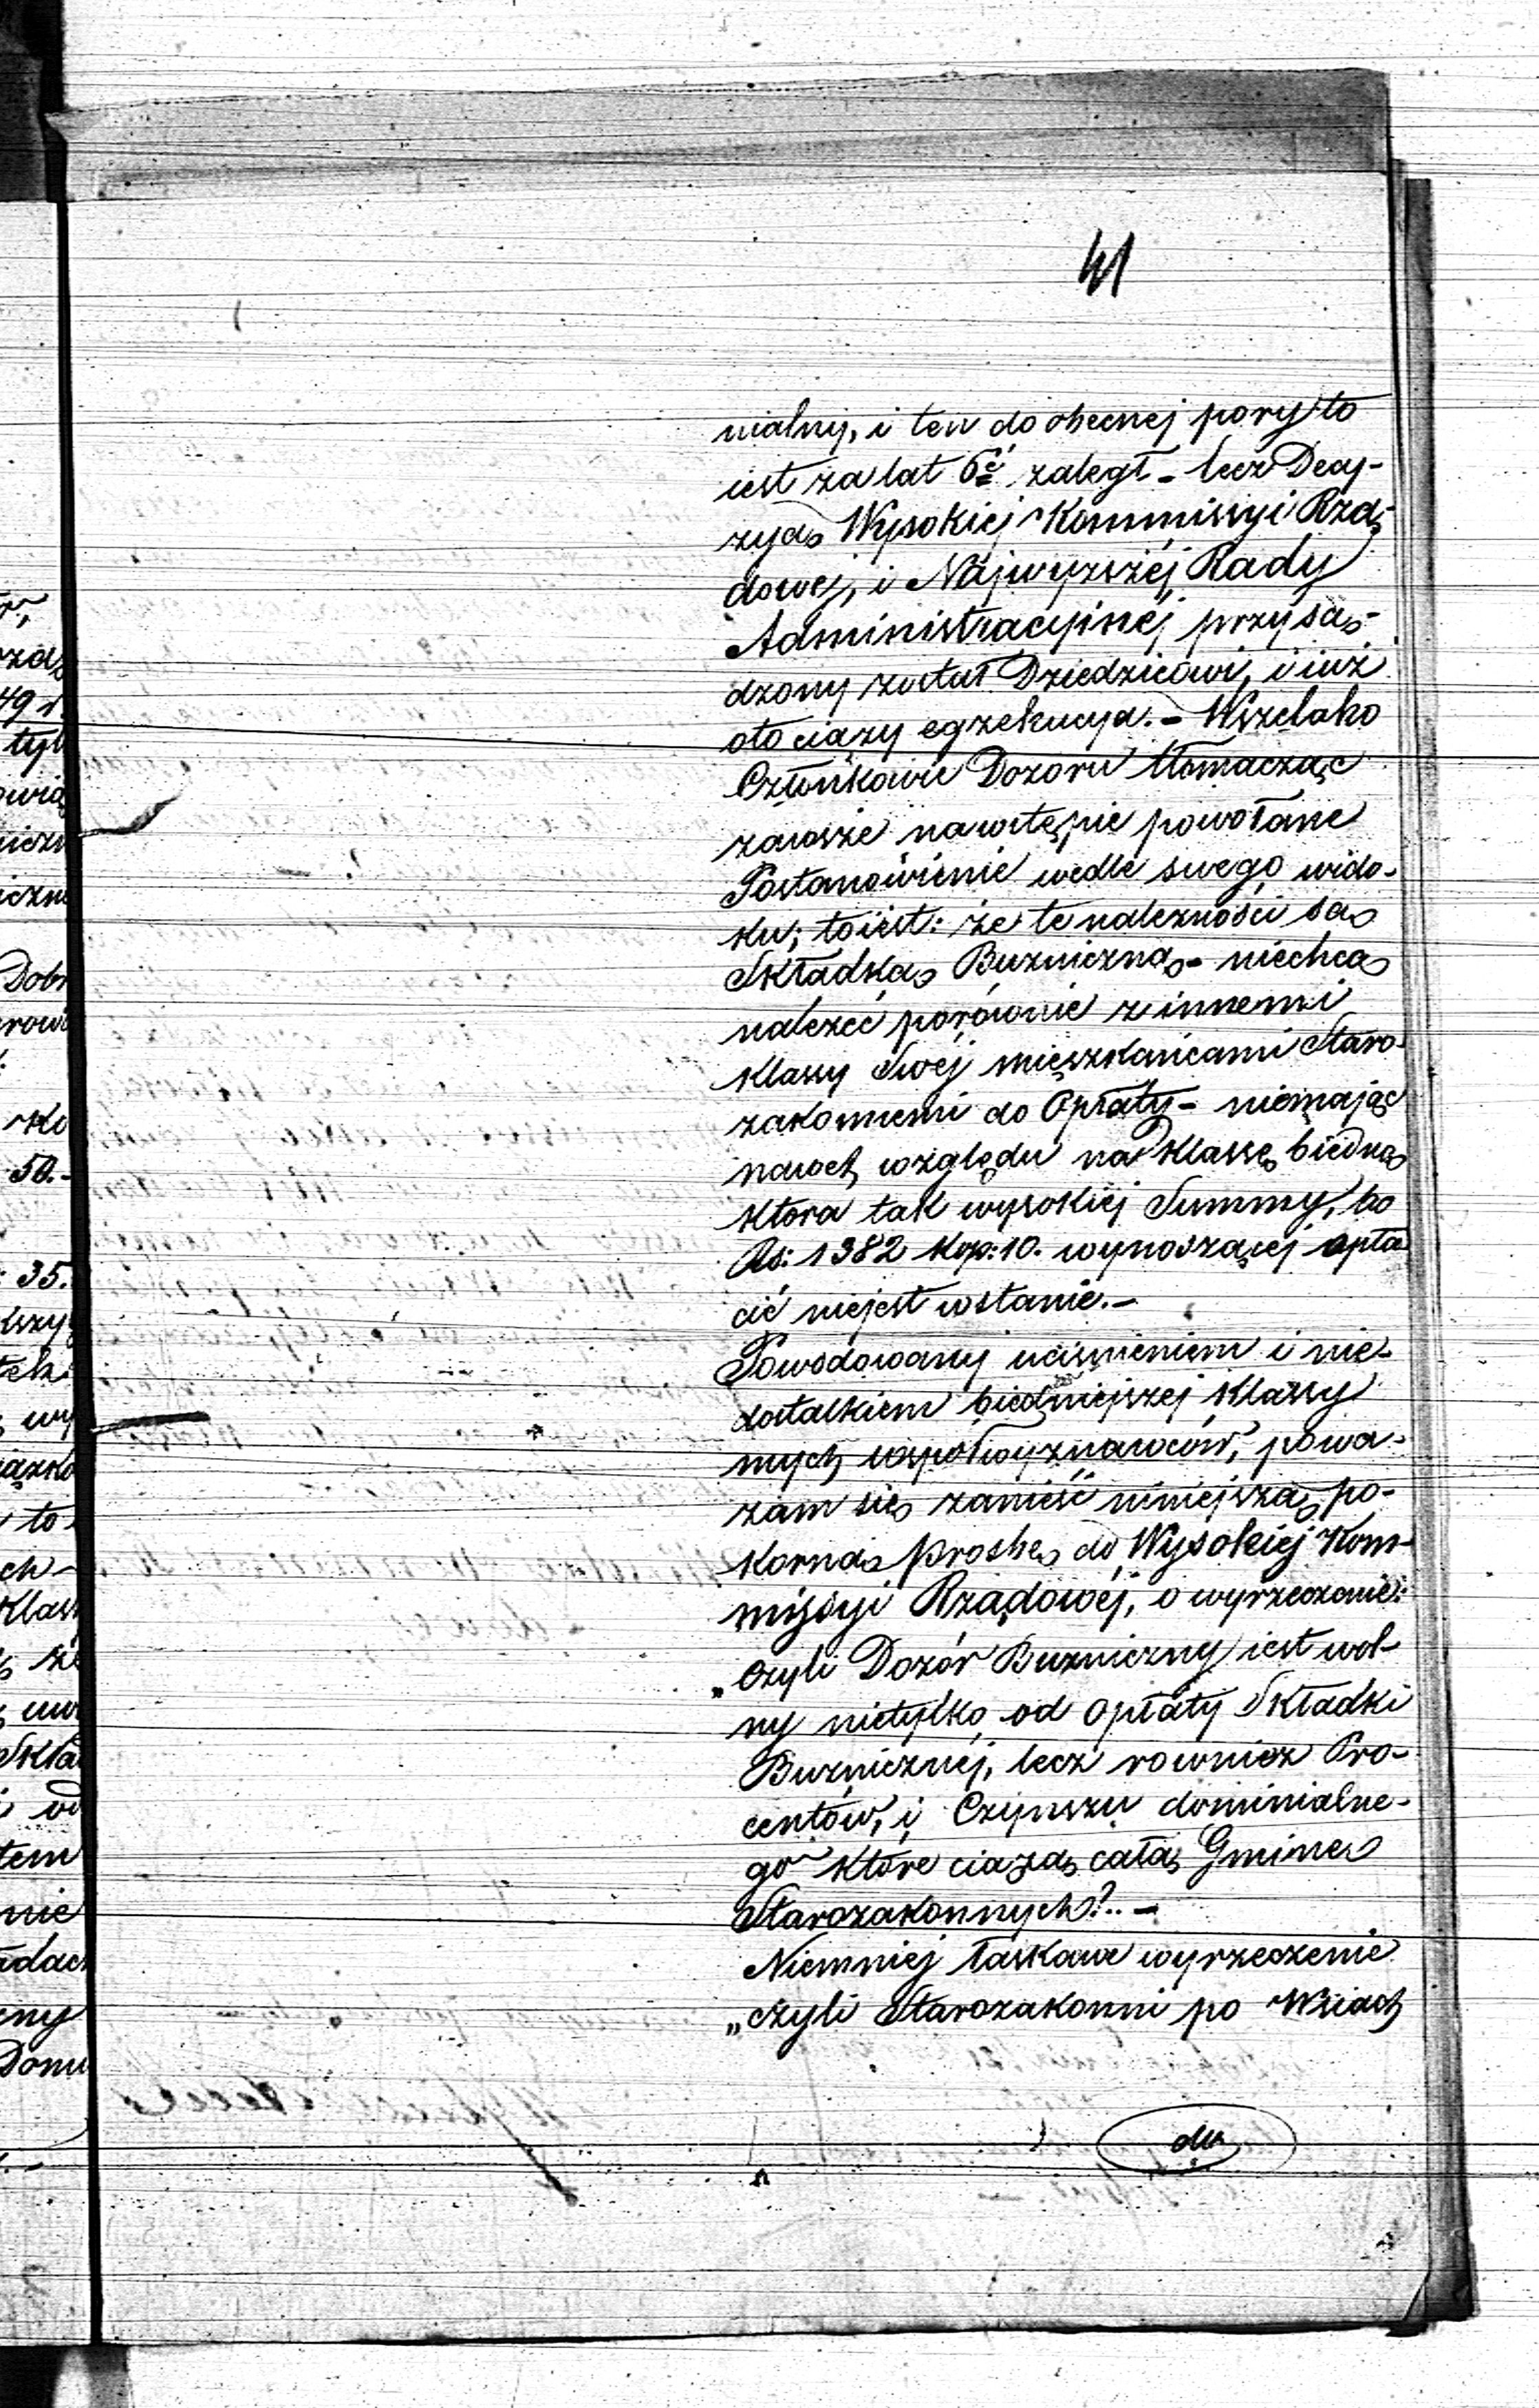 41
nialny, i ten do obecnej pory to
iest za lat 6ć zaległ - lecz Decy-
zyą Wysokiej Kommissyi Rzą-
dowej, i Najwyższéj Rady
Administracyinéj przysą-
dzony został Dziedzicowi, i iuż
oto ciąży egzekucya. - Wszelako
Członkowie Dozoru tłomacząc
zawsze na wstępie powołane
Postanowienie wedle swego wido-
ku; toiest: że te należności są
Składką Buzniczną - niechcą
należéć porównie z innemi
klassy Swéj mieszkańcami Staro-
zakonnemi do Opłaty - niemając
nawet względu na Klassę biedną
która tak wysokiéj Summy, bo
Rs: 1382 kop: 10. wynoszącej opła
cić niejest wstanie. -
Powodowany uciśnieniem i nie-
dostatkiem biedniejszej Klassy
mych współwyznawców, powa-
żam się zanieść niniejszą po-
korną prośbę do Wysokiej Kom-
missyi Rządowéj, o wyrzeczenie:
„czyli Dozór Buzniczny iest wol-
ny nietylko od opłaty Składki
Buznicznéj, lecz rownież Pro-
centów, i Czynszu dominialne-
go które ciążą całą Gminę
Starozakonnych?.. -
Niemniéj łaskawe wyrzeczenie
„czyli Starozakonni po Wsiach